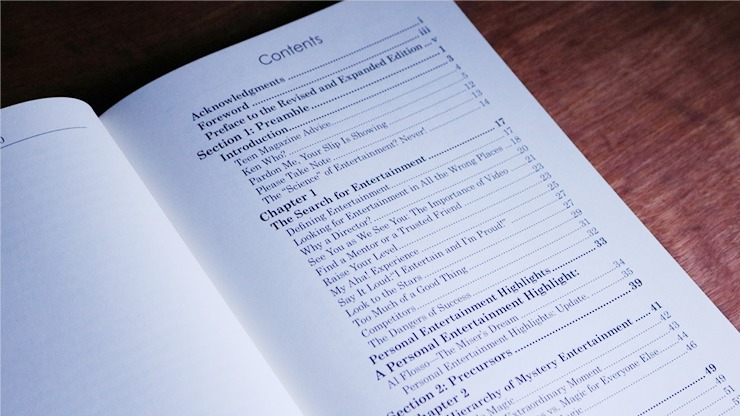 Contents
Acknowledgments i
Foreword iii
Preface to the Revised and Expanded Edition v
Section 1: Preamble 1
Introduction 3
Teen Magazine Advice 4
Ken Who?
Pardon Me, Your Slip Is Showing 12
Please Take Note 13
The "Science" of Entertainment? Never! 14
Chapter 1
The Search for Entertainment 17
Defining Entertainment 17
Looking for Entertainment in All the Wrong Places 18
Why a Director? 20
See You as We See You: The Importance of Video 21
Find a Mentor or a Trusted Friend 23
Raise Your Level 25
My Aha! Experience 27
Say It Loud: "I Entertain and I'm Proud!" 27
Look to the Stars 29
Too Much of a Good Thing 31
Competitors 32
The Dangers of Success
Personal Entertainment Highlights 33
A Personal Entertainment Highlight:
Al Flosso—The Miser's Dream 34
Personal Entertainment Highlights: Update 35
Section 2: Precursors 39
Chapter 2
Hierarchy of Mystery Entertainment 41
Magic 42
Extraordinary Moment 43
vs. Magic for Everyone Else 44
46
49
49